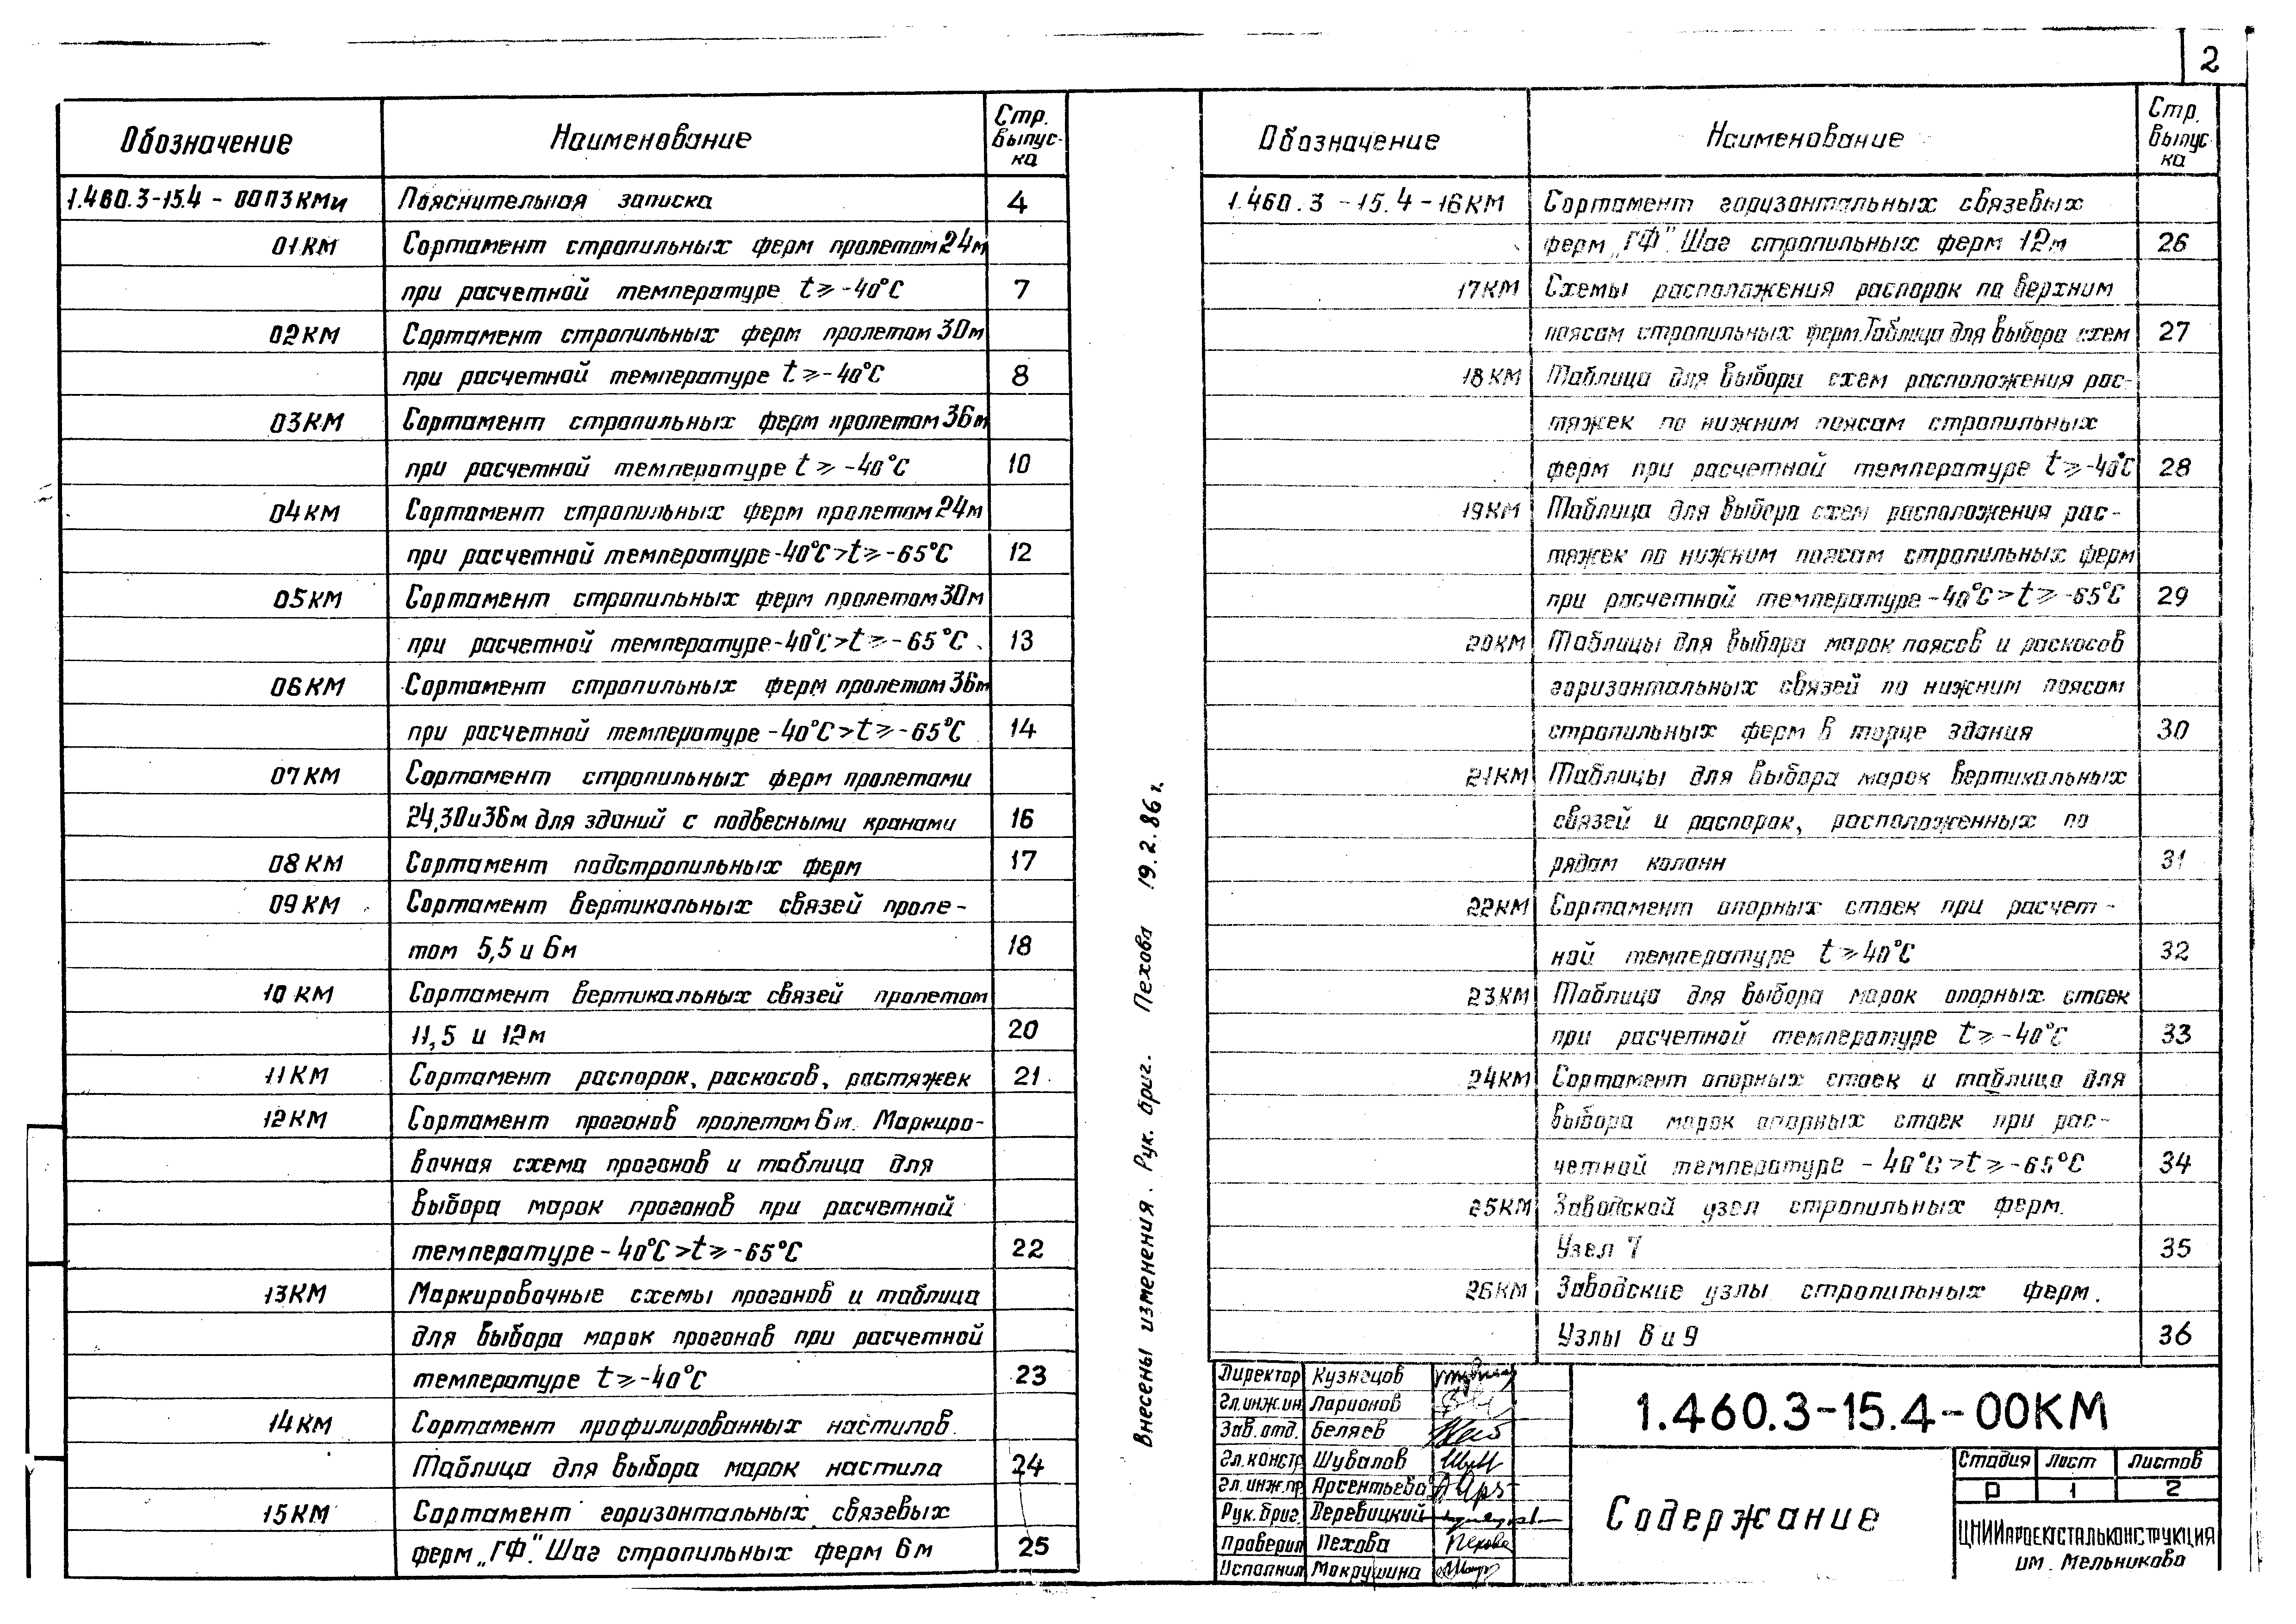 2
Обозначение
Наименование
Стр.
выпус-
ка
1.460.3-15.4 - 00ПЗКМи Пояснительная записка 4
01КМ Сортамент стропильных ферм пролетом 24м
при расчетной температуре t ⩾ -40°С 7
02КМ Сортамент стропильных ферм пролетом 30м
при расчетной температуре t ⩾ -40°С 8
03КМ Сортамент стропильных ферм пролетом 36м
при расчетной температуре t ⩾ -40°С 10
04КМ Сортамент стропильных ферм пролетом 24м
при расчетной температуре -40°С > t ⩾ -65°С 12
05КМ Сортамент стропильных ферм пролетом 30м
при расчетной температуре -40°С > t ⩾ -65°С 13
06КМ Сортамент стропильных ферм пролетом 36м
при расчетной температуре -40°С > t ⩾ -65°С 14
07КМ Сортамент стропильных ферм пролетами
24,30и36м для зданий с подвесными кранами 16
08КМ Сортамент подстропильных ферм 17
09КМ Сортамент вертикальных связей проле-
том 5,5 и 6м 18
10 КМ Сортамент вертикальных связей пролетом
11,5 и 12м 20
11КМ Сортамент распорок, раскосов, растяжек 21
12КМ Сортамент прогонов пролетом 6м. Маркиро-
вочная схема прогонов и таблица для
выбора марок прогонов при расчетной
температуре -40°С > t ⩾ -65°С 22
13КМ Маркировочные схемы прогонов и таблица
для выбора марок прогонов при расчетной
температуре t ⩾ -40°С 23
14КМ Сортамент профилированных настилов.
Таблица для выбора марок настила 24
15КМ Сортамент горизонтальных связевых
ферм „ГФ". Шаг стропильных ферм 6м 25
Внесены изменения. Рук. бриг. Пехова 19.2.86г.
Обозначение
Наименование
Стр.
выпус
ка
1.460.3 - 15.4 - 16КМ Сортамент горизонтальных связевых
ферм „ГФ". Шаг стропильных ферм 12м 26
17КМ Схемы расположения распорок по верхним
поясам стропильных ферм. Таблица для выбора схем 27
18КМ Таблица для выбора схем расположения рас-
тяжек по нижним поясам стропильных
ферм при расчетной температуре t ⩾ -40°С 28
19КМ Таблица для выбора схем расположения рас-
тяжек по нижним поясам стропильных ферм
при расчетной температуре -40°С > t ⩾ -65°С 29
20КМ Таблицы для выбора марок поясов и раскосов
горизонтальных связей по нижним поясам
стропильных ферм в торце здания 30
21КМ Таблицы для выбора марок вертикальных
связей и распорок, расположенных по
рядам колонн 31
22КМ Сортамент опорных стоек при расчет-
ной температуре t ⩾ 40°С 32
23КМ Таблица для выбора марок опорных стоек
при расчетной температуре t ⩾ -40°С 33
24КМ Сортамент опорных стоек и таблица для
выбора марок опорных стоек при рас-
четной температуре -40°С > t ⩾ -65°С 34
25КМ Заводской узел стропильных ферм.
Узел 7 35
26КМ Заводские узлы стропильных ферм.
Узлы 8 и 9 36
Директор Кузнецов
Гл.инж.ин Ларионов
Зав. отд. Беляев
Гл.констр Шувалов
Гл. инж.пр Арсентьева
Рук.бриг. Веревицкий
Проверил Пехова Пехова
Исполнил Мокрушина
1.460.3-15.4-00КМ
Содержание
Стадия Лист Листов
Р 1 2
ЦНИИпроектстальконструкция
им. Мельникова